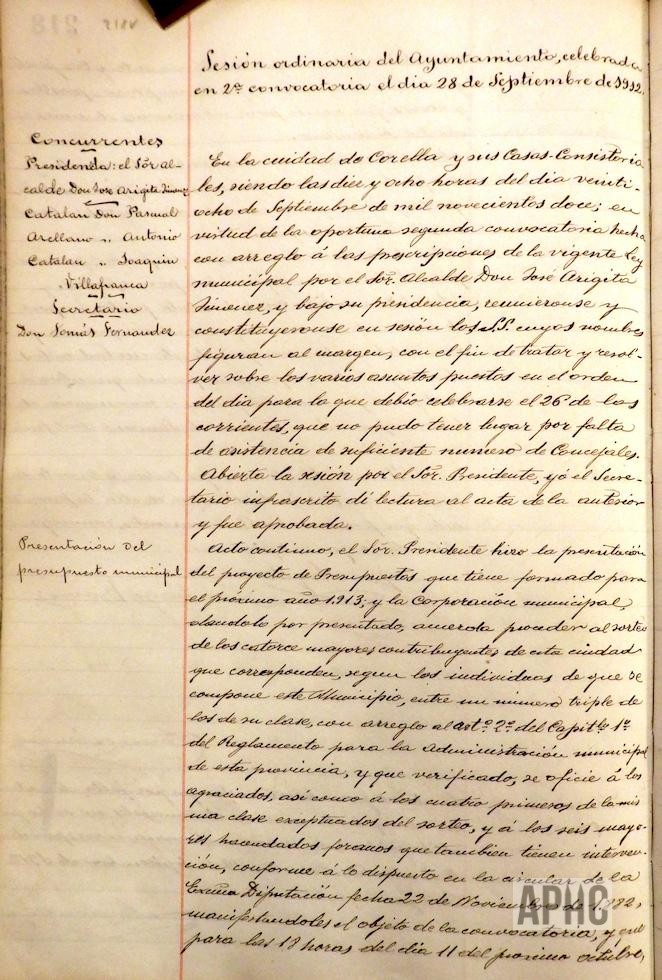 Sesión ordinaria del Ayuntamiento, celebrada
en 2ª convocatoria el dia 28 de Septiembre de 1912.
Concurrentes
Presidencia: el Sõr al-
calde Don Jose Arigita Jimenez
Catalan Don Pascual
Arellano " Antonio
Catalan " Joaquin
Villafranca
Secretario
Don Tomás Fernandez
En la ciudad de Corella y sus Casas-Consistoria
les, siendo las diez y ocho horas del dia veinti-
ocho de Septiembre de mil novecientos doce; en
virtud de la oportuna segunda convocatoria hecha
con arreglo á las prescripciones de la vigente Ley
municipal por el Sõr. Alcalde Don José Arigita
Jimenez, y bajo su presidencia, reunieronse y
constituyeronse en sesión los S.S. cuyos nombres
figuran al margen, con el fin de tratar y resol-
ver sobre los varios asuntos puestos en el orden
del dia para la que debió celebrarse el 26 de los
corrientes, que no pudo tener lugar por falta
de asistencia de suficiente numero de Concejales.
Abierta la sesión por el Sõr. Presidente, yó el Secre-
tario infrascrito dí lectura al acta de la anterior
y fue aprobada.
Presentación del
presupuesto municipal
Acto continuo, el Sõr. Presidente hizo la presentación
del proyecto de Presupuestos que tiene formado para
el próximo año 1.913; y la Corporación municipal,
dandolo por presentado, acuerda proceder al sorteo
de los catorce mayores contribuyentes de esta ciudad
que corresponden, segun los individuos de que se
compone este Municipio, entre un numero triple de
los de su clase, con arreglo al artº 2º del Capitlo 1º
del Reglamento para la administración municipal
de esta provincia, y que verificado, se oficie á los
agraciados, asi como á los cuatro primeros de la mis
ma clase exceptuados del sorteo, y á los seis mayo-
res hacendados foranos que tambien tienen interven-
ción, conforme á lo dispuesto en la circular de la
Excma Diputación fecha 22 de Noviembre de 1.882,
manifestandoles el objeto de la convocatoria, y que
para las 18 horas del dia 11 del proximo octubre,
APHC